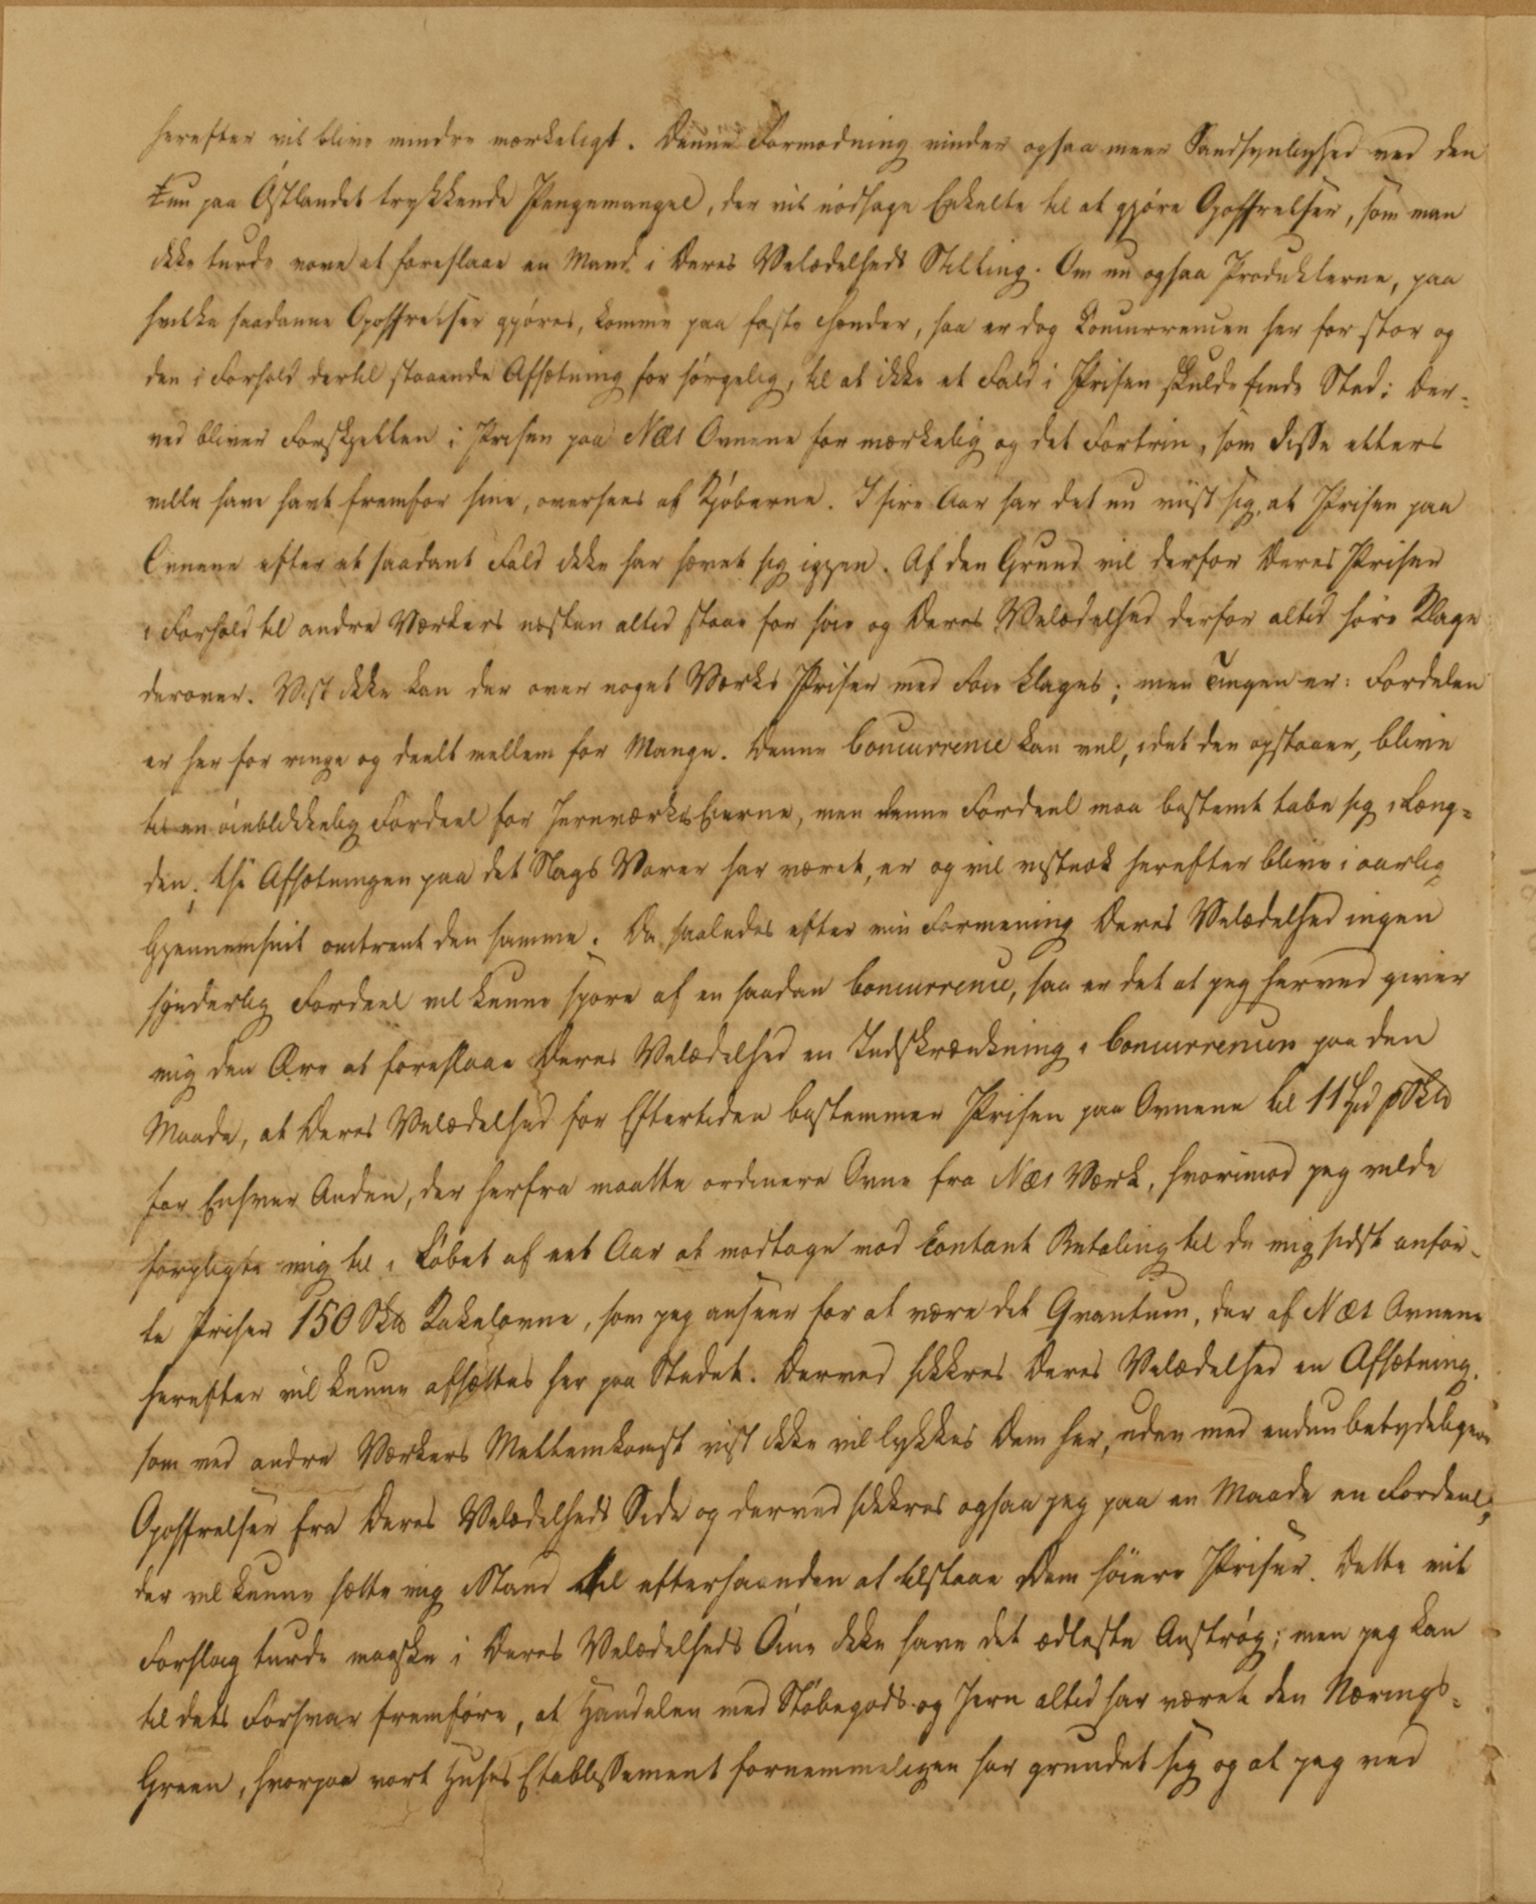 herefter vil blive mindre mærkeligt. Denne Formodning vinder ogsaa meer Sandsynlighed ved den
nu paa Østlandet trykkende Pengemangel, der vil nödsage Enkelte til at gjöre Opoffrelser, som man
ikke turde vove at foreslaae en Mand i Deres Velædelheds Stilling. Om nu ogsaa Produkterne, paa
hvilke saadanne Opoffrelser gjöres, komme paa faste Hænder, saa er dog Concurrencen her for stor og
den i Forhold dertil staaende Afsætning for sörgelig, til at ikke et Fald i Prisen skulde finde Sted: Der-
ved bliver Forskjellen i Prisen paa Næs Ovnene for mærkelig og det Fortrin, som disse ellers
ville have havt fremfor hine, oversees af Kjöberne. I fire Aar har det nu viist sig, at Prisen paa
Ovnene efter et saadant Fald ikke har hævet sig igjen. Af den Grund vil derfor Deres Priser
i Forhold til andre Værkers næsten altid staae for höie og Deres Velædelhed derfor altid höre Klage
derover. Vist ikke kan der over noget Værks Priser med Föie klages; men Tingen er: Fordelen
er her for ringe og deelt mellem for Mange. Denne Concurrence kan vel, idet den opstaaer, blive
til en öieblikkelig Fordeel for JernværksEierne, men denne Fordeel maa bestemt tabe sig i Læng-
den; thi Afsætningen paa det Slags Varer har været, er og vil vistnok herefter blive i aarlig
Gjennemsnit omtrent den samme. Da saaledes efter min Formening Deres Velædelhed ingen
synderlig Fordeel vil kunne spore af en saadan Concurrence, saa er det at jeg herved giver
mig den Ære at foreslaae Deres Velædelhed en Indskrænkning i Concurrencen paa den
Maade, at Deres Velædelhed for Eftertiden bestemmer Prisen paa Ovnene til 11 Spd p Skb
for Enhver Anden, der herfra maatte ordinere Ovne fra Næs Værk, hvorimod jeg vilde
forpligte mig til i Löbet af eet Aar at modtage mod contant Betaling til de mig sidst anför-
te Priser 150 Skb Kakelovne, som jeg anseer for at være det Qvantum, der af Næs Ovnene
herefter vil kunne afsættes her paa Stedet. Derved sikkres Deres Velædelhed en Afsætning,
som ved andre Værkers Mellemkomst vist ikke vil lykkes Dem her, uden med endnu betydeligere
Opoffrelser fra Deres Velædelheds Side og derved sikkres ogsaa jeg paa en Maade en Fordeel,
der vil kunne sætte mig istand til efterhaanden at tilstaae Dem höiere Priser. Dette mit
Forslag turde maaske i Deres Velædelheds Öine ikke have det ædleste Anströg; men jeg kan
til dets Forsvar fremföre, at Handelen med Stöbegods og Jern altid har været den Nærings-
Green, hvorpaa vort Huses Etablissement fornemmeligen har grundet sig og at jeg ved